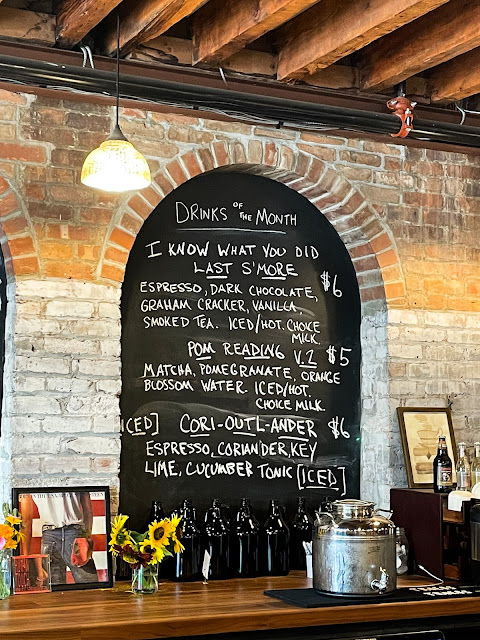 DRINKS OF THE MONTH
I KNOW WHAT YOU DID
LAST S'MORE $6
ESPRESSO, DARK CHOCOLATE,
GRAHAM CRACKER, VANILLA,
SMOKED TEA. ICED/HOT. CHOICE
MILK.
POM READING V.2 $5
MATCHA, POMEGRANATE, ORANGE
BLOSSOM WATER. ICED/HOT.
CHOICE MILK.
[ICED] CORI-OUTL-ANDER $6
ESPRESSO, CORIANDER, KEY
LIME, CUCUMBER TONIC [ICED]